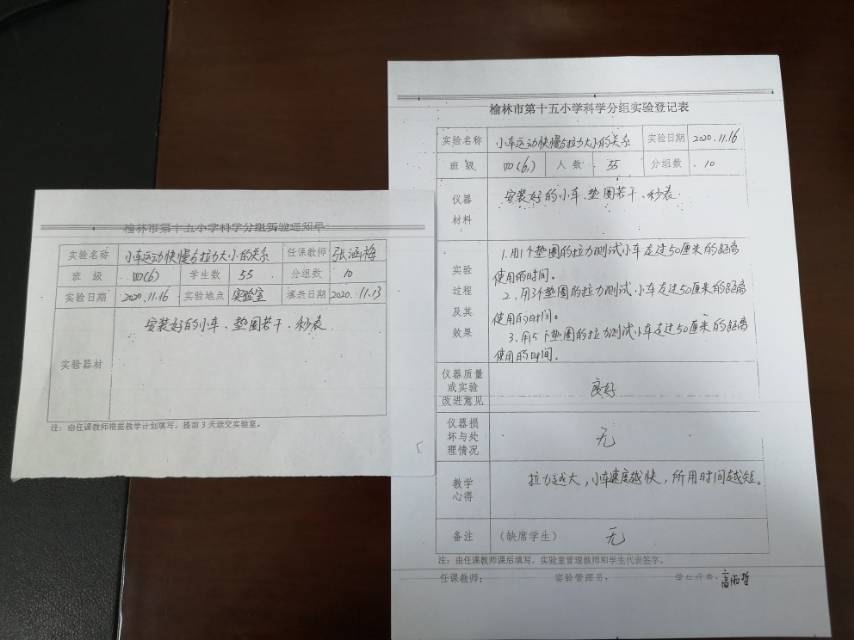 榆林市第十五小学科学分组实验通知单
实验名称 小车运动快慢与拉力大小的关系 任课教师 张涵梅
班 级 四(6) 学生数 55 分组数 10
实验日期 2020.11.16 实验地点 实验室 填表日期 2020.11.13
实验器材 安装好的小车、垫圈若干、秒表
注：由任课教师根据教学计划填写，提前3天送交实验室。
榆林市第十五小学科学分组实验登记表
实验名称 小车运动快慢与拉力大小的关系 实验日期 2020.11.16
班 级 四(6) 人 数 55 分组数 10
仪器材料 安装好的小车、垫圈若干、秒表
实验过程及其效果
1.用1个垫圈的拉力测试小车走过50厘米的距离
使用的时间。
2.用3个垫圈的拉力测试小车走过50厘米的距离
使用的时间。
3.用5个垫圈的拉力测试小车走过50厘米的距离
使用的时间。
仪器质量或实验改进意见 良好
仪器损坏与处理情况 无
教学心得 拉力越大，小车速度越快，所用时间越短。
备注 （缺席学生） 无
注：由任课教师课后填写，实验室管理教师和学生代表签字。
任课教师： 实验管理员： 学生代表：